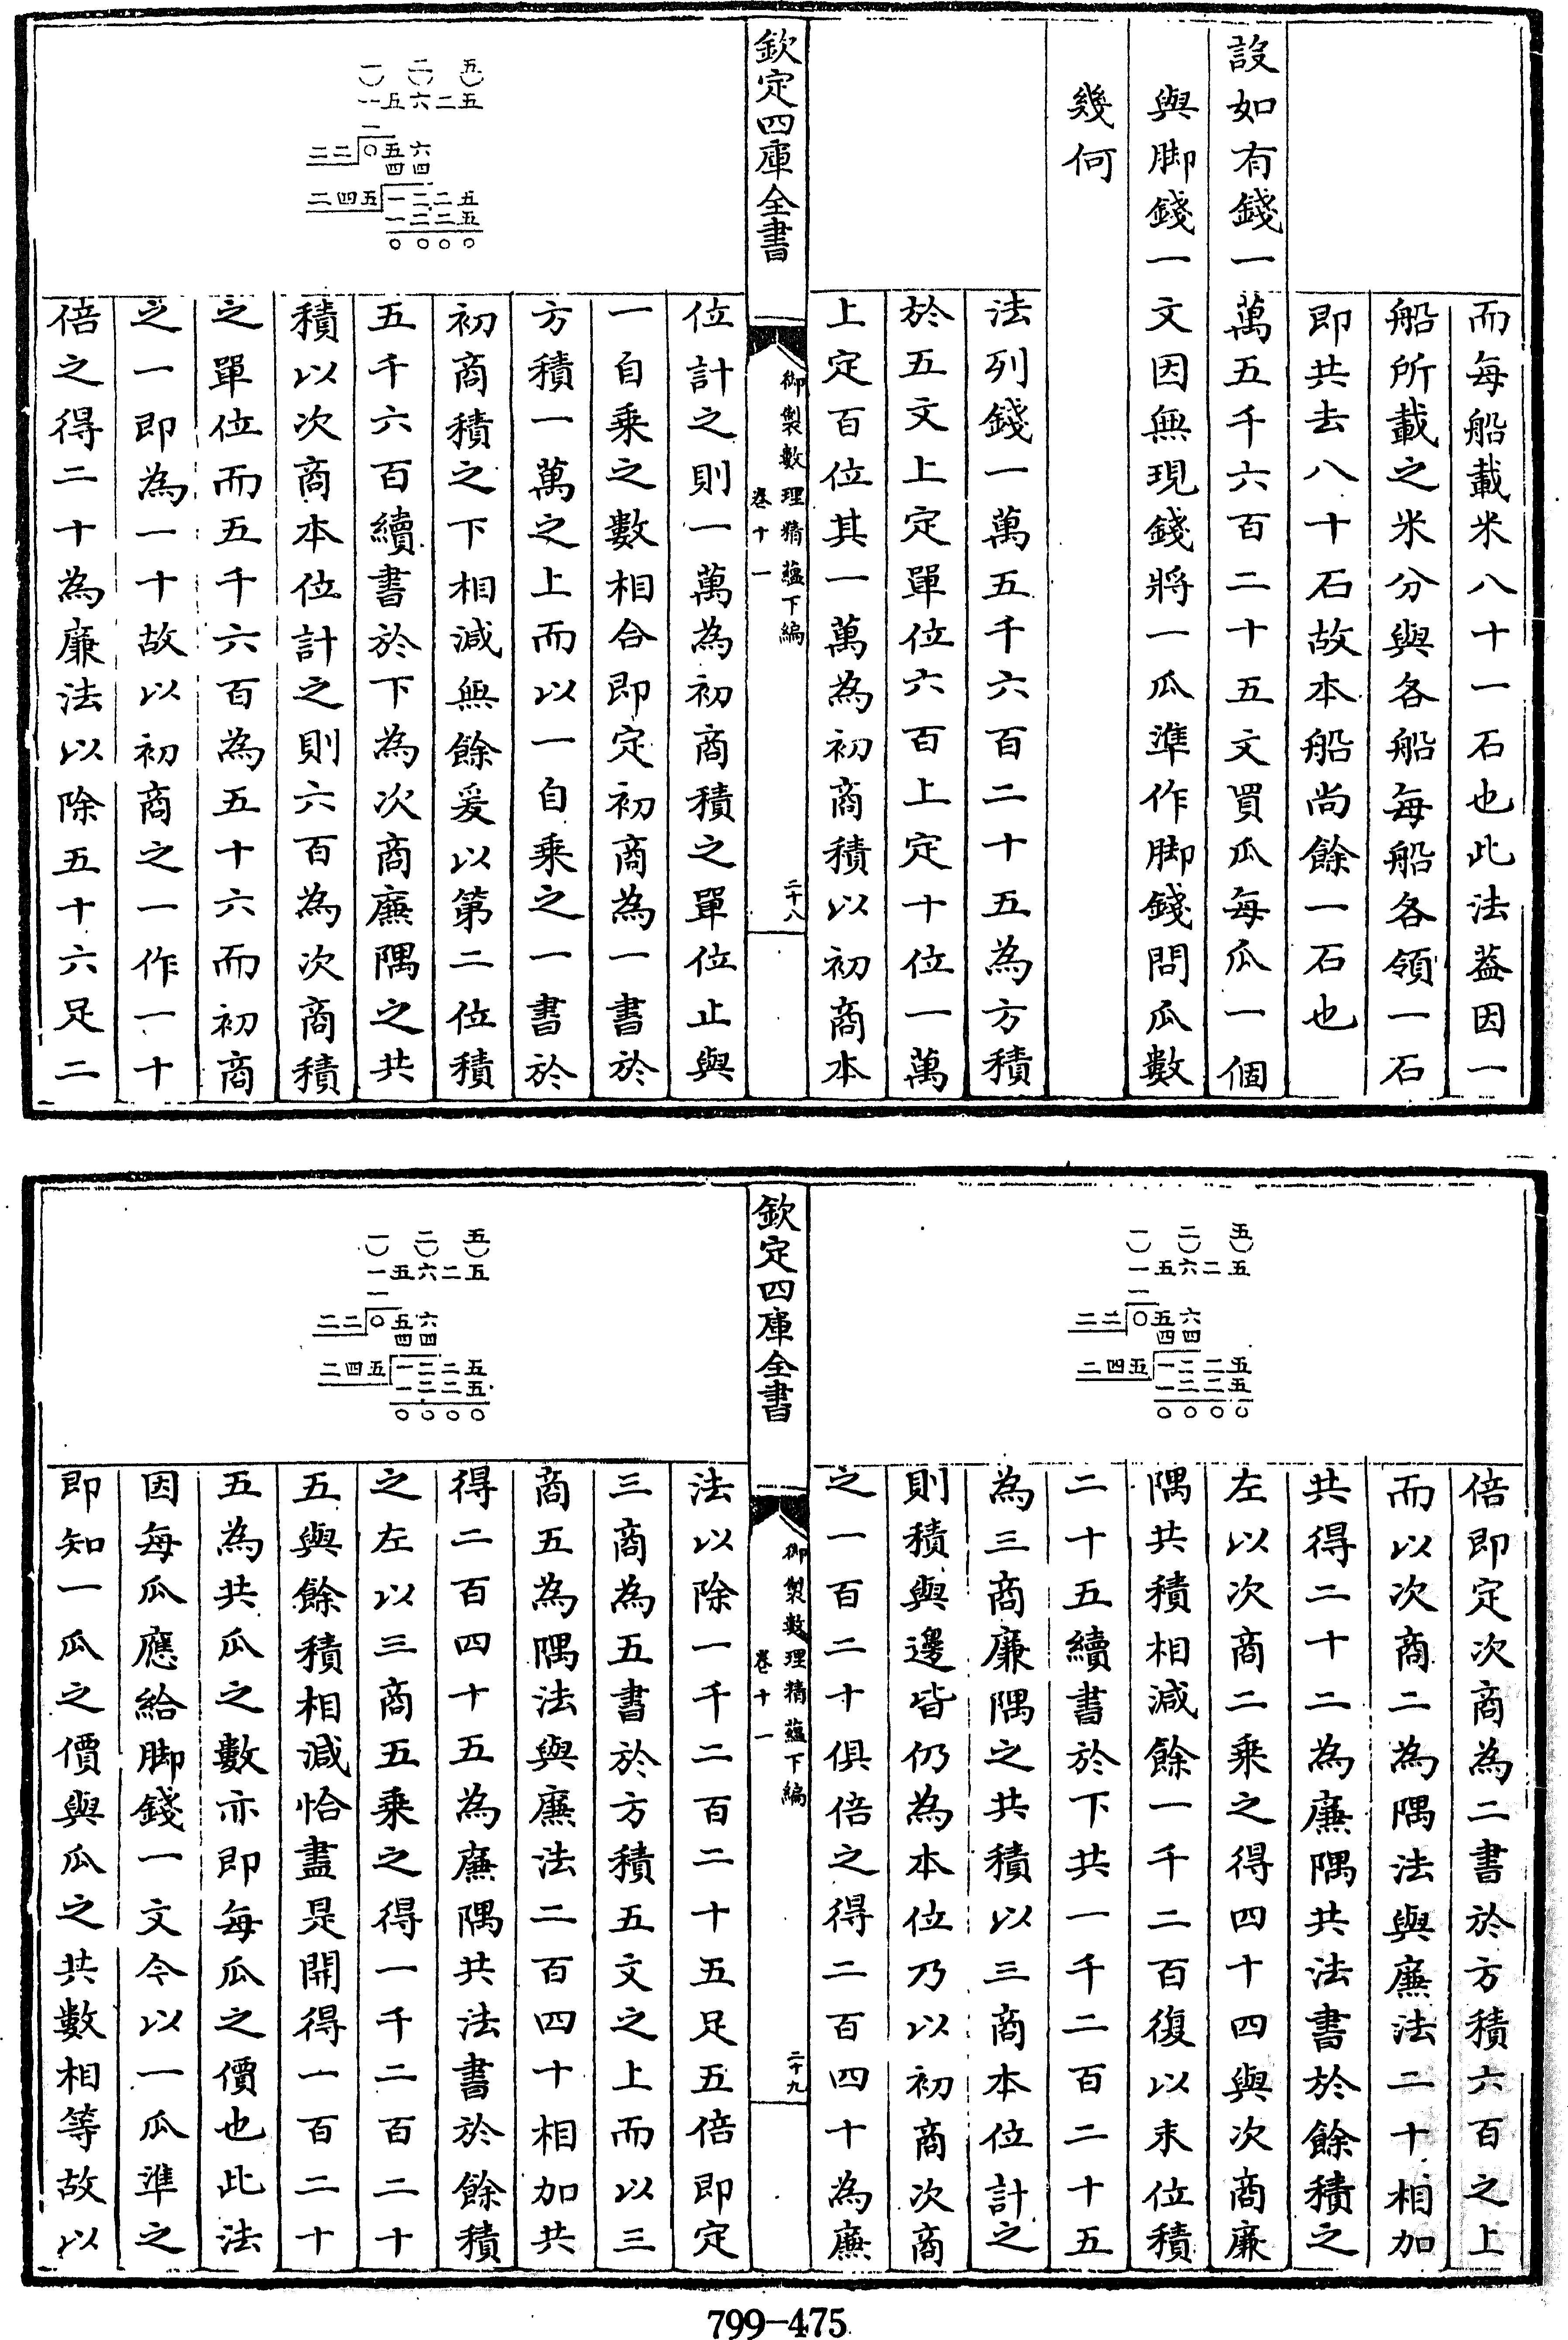 而每船載米八十一石也此法葢因一
船所載之米分與各船每船各領一石
即共去八十石故本船尚餘一石也
設如有錢一萬五千六百二十五文買瓜每瓜一個
與脚錢一文因無現錢將一瓜準作脚錢問瓜數
幾何
法列錢一萬五千六百二十五為方積
於五文上定單位六百上定十位一萬
上定百位其一萬為初商積以初商本
欽定四庫全書
御製數理精蘊下編
卷十一
二十八
五 二 一
一五六二五
一
二二 〇五六
四四
二四五 一二二五
一二二五
〇〇〇〇
位計之則一萬為初商積之單位止與
一自乗之數相合即定初商為一書於
方積一萬之上而以一自乗之一書於
初商積之下相減無餘爰以第二位積
五千六百續書於下為次商廉隅之共
積以次商本位計之則六百為次商積
之單位而五千六百為五十六而初商
之一即為一十故以初商之一作一十
倍之得二十為廉法以除五十六足二
一 二 五
一五六二五
一
二二 〇五六
四四
二四五 一二二五
一二二五
〇〇〇〇
倍即定次商為二書於方積六百之上
而以次商二為隅法與廉法二十相加
共得二十二為廉隅共法書於餘積之
左以次商二乗之得四十四與次商廉
隅共積相減餘一千二百復以末位積
二十五續書於下共一千二百二十五
為三商廉隅之共積以三商本位計之
則積與邊皆仍為本位乃以初商次商
之一百二十俱倍之得二百四十為廉
欽定四庫全書
御製數理精蘊下編
卷十一
二十九
一 二 五
一五六二五
一
二二 〇五六
四四
二四五 一二二五
一二二五
〇〇〇〇
法以除一千二百二十五足五倍即定
三商為五書於方積五文之上而以三
商五為隅法與廉法二百四十相加共
得二百四十五為廉隅共法書於餘積
之左以三商五乗之得一千二百二十
五與餘積相減恰盡是開得一百二十
五為共瓜之數亦即每瓜之價也此法
因每瓜應給脚錢一文今以一瓜準之
即知一瓜之價與瓜之共數相等故以
799-475